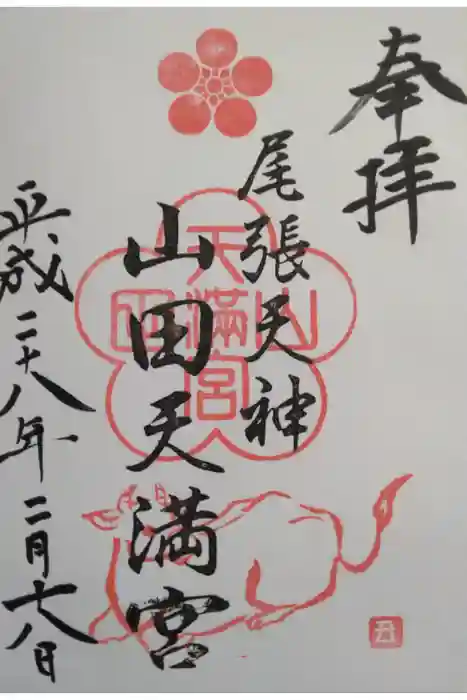 奉拝
尾張天神
山田天満宮
平成二十八年二月十八日
山田天満宮
丑